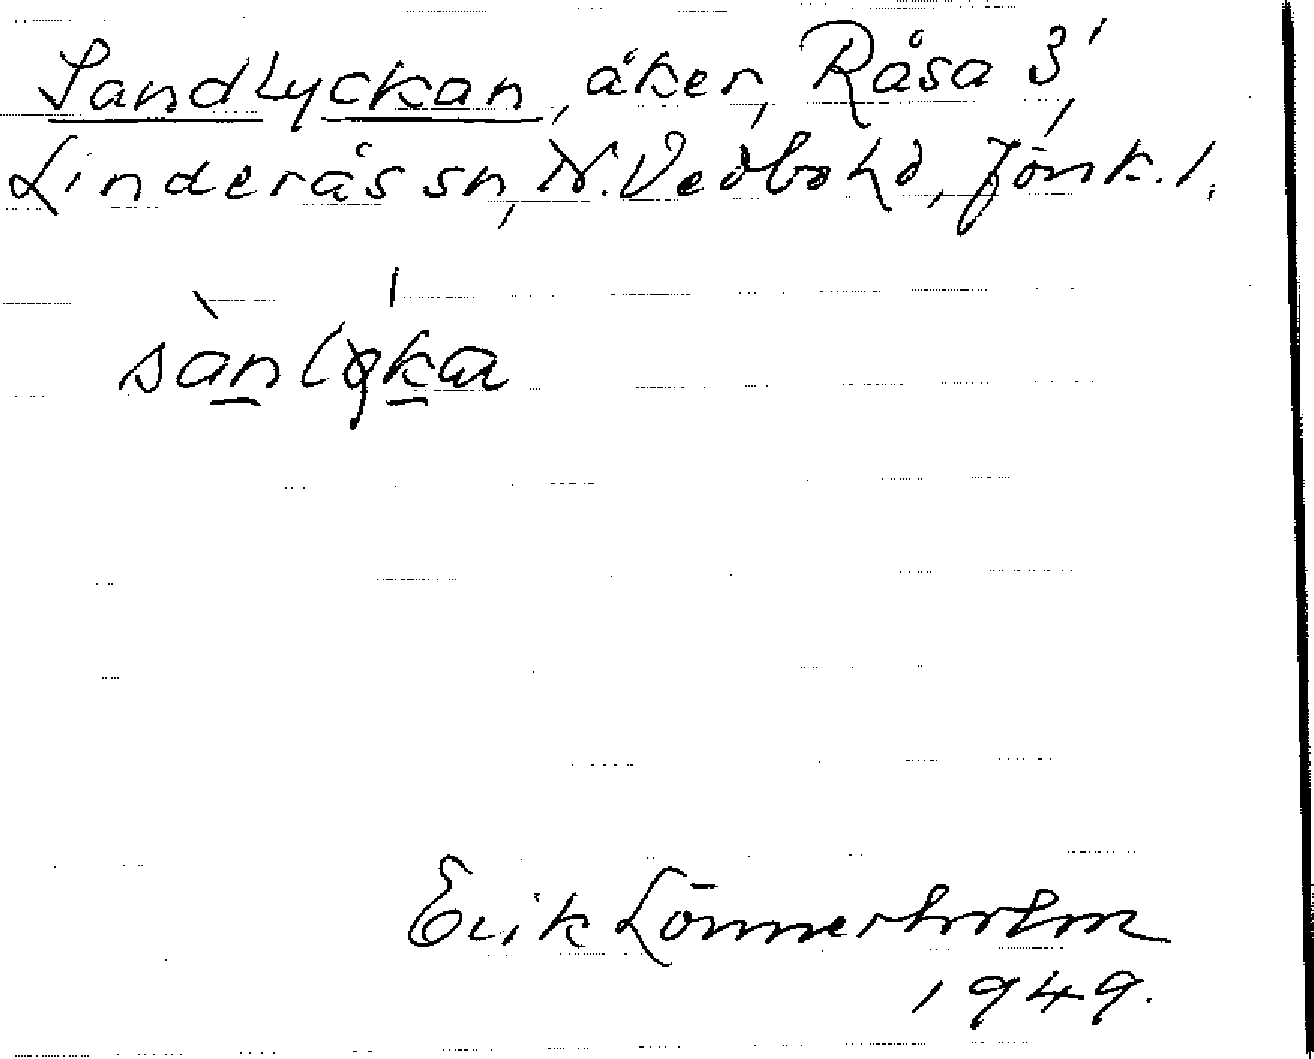 Sandlyckan, åker, Råsa 3¹,
Linderås sn, N. Vedbo hd, Jönk. l.
Erik Lönnerholm
1949.